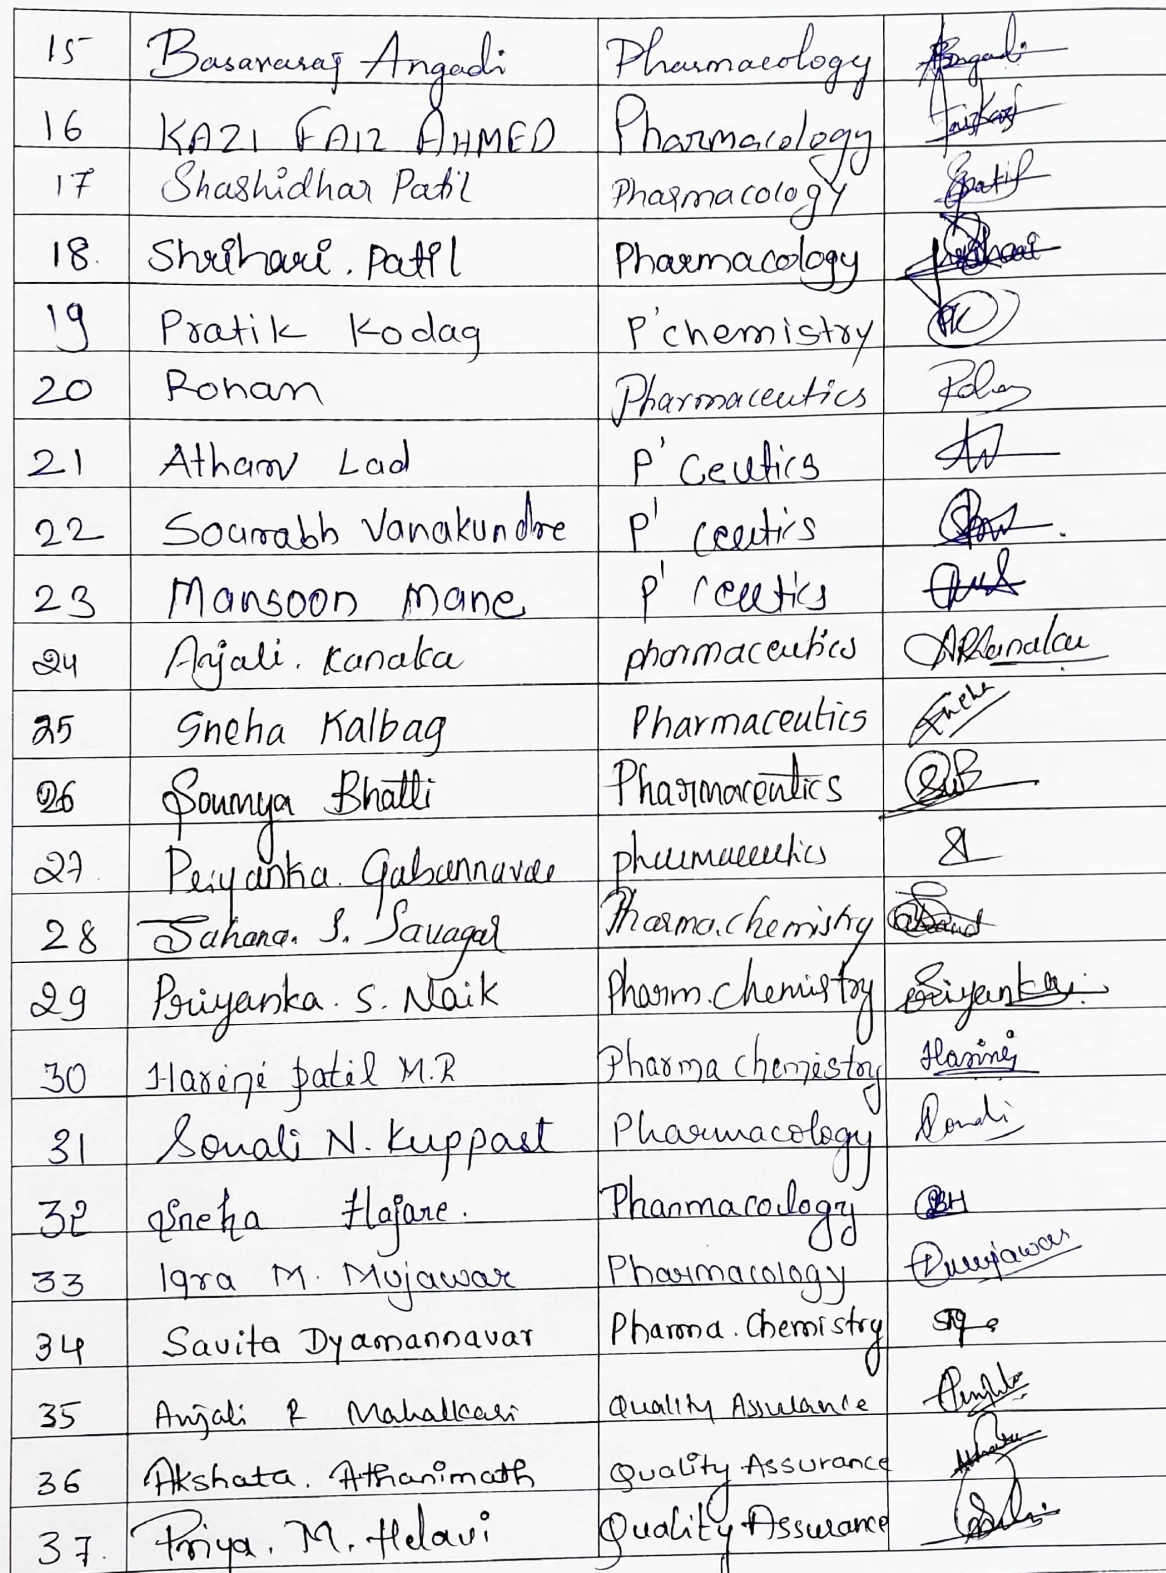 15 Basavaraj Angadi Pharmacology Angadi
16 KAZI FAIZ AHMED Pharmacology
17 Shashidhar Patil Pharmacology Spatil
18. Shrihari. Patil Pharmacology
19 Pratik Kodag P'chemistry
20 Rohan Pharmaceutics
21 Atharv Lad P' Ceutics
22 Sourabh Vanakundre P' ceutics
23 Mansoon Mane P' ceutics
24 Anjali. Kanaka pharmaceutics
25 Sneha Kalbag Pharmaceutics Sneha
26 Soumya Bhatti Pharmaceutics
27. Priyanka. Gabannavar pharmaceutics
28 Sahana. S. Savagar Pharma.chemistry
29 Priyanka. S. Naik Pharm.chemistry Priyanka.
30 Harini patil M.R Pharma chemistry Harini
31 Sonali N. Kuppast Pharmacology Sonali
32 Sneha Hajare. Pharmacology
33 Iqra M. Mujawar Pharmacology Mujawar
34 Savita Dyamannavar Pharma. Chemistry
35 Anjali R Mahalkari Quality Assurance
36 Akshata. Athanimath Quality Assurance
37. Priya. M. Helavi Quality Assurance